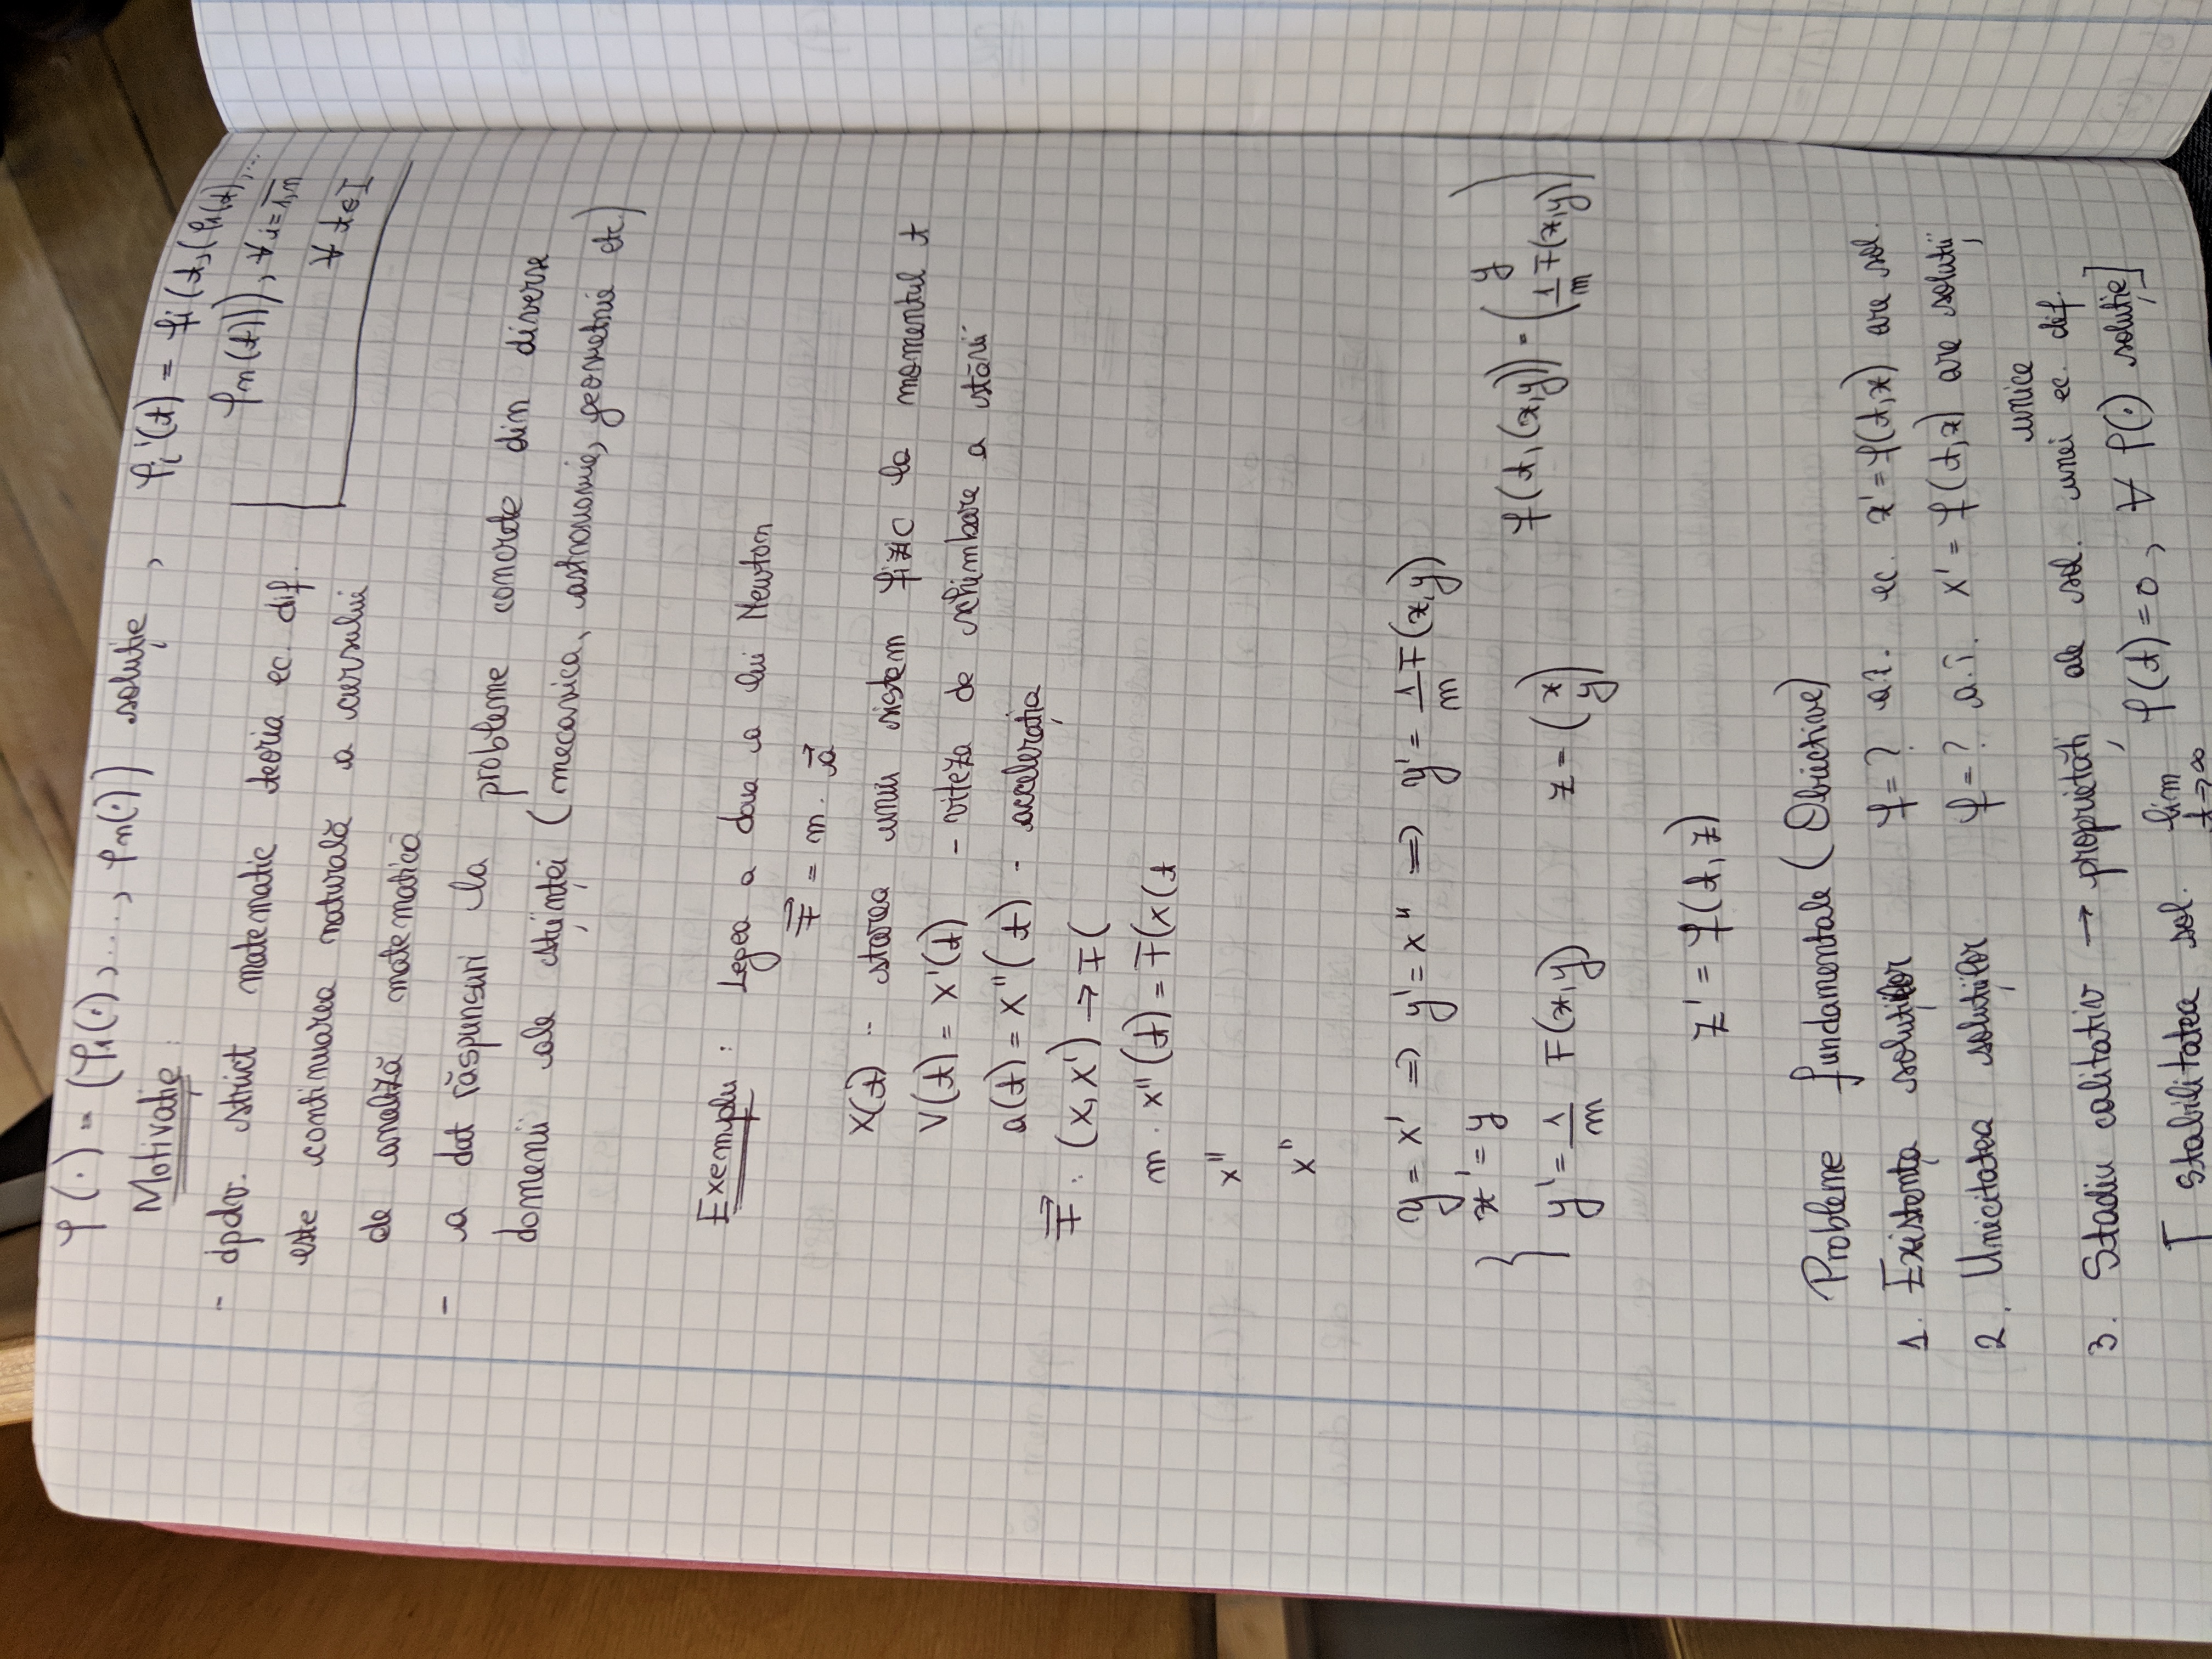 φ(·) = (φ1(·), ..., φn(·)) soluție , φi'(t) = fi(t,(φ1(t),...
φn(t))), ∀ i=1,n
∀ t∈I
Motivație :
- dpdv. strict matematic teoria ec. dif.
este continuarea naturală a cursului
de analiză matematică
- a dat răspunsuri la probleme concrete din diverse
domenii ale științei (mecanica, astronomie, geometrie etc.)
Exemplu : Legea a doua a lui Newton
F = m · a
x(t) - starea unui sistem fizic la momentul t
V(t) = x'(t) - viteza de schimbare a stării
a(t) = x"(t) - accelerația
F : (x, x') → F(
m · x"(t) = F(x(t
x"
x"
y = x' => y' = x" => y' = 1/m F(x,y)
{ x' = y
y' = 1/m F(x,y) z = (x y) f(t,(x,y)) = (y 1/m F(x,y))
z' = f(t, z)
Probleme fundamentale (Obiective)
1. Existența soluțiilor f = ? a.î. ec. x' = f(t,x) are sol.
2. Unicitatea soluțiilor f = ? a.î. x' = f(t,x) are soluții
unice
3. Stadiu calitativ → proprietăți ale sol. unei ec. dif.
[ stabilitatea sol. lim t→∞ φ(t) = 0, ∀ φ(·) soluție]